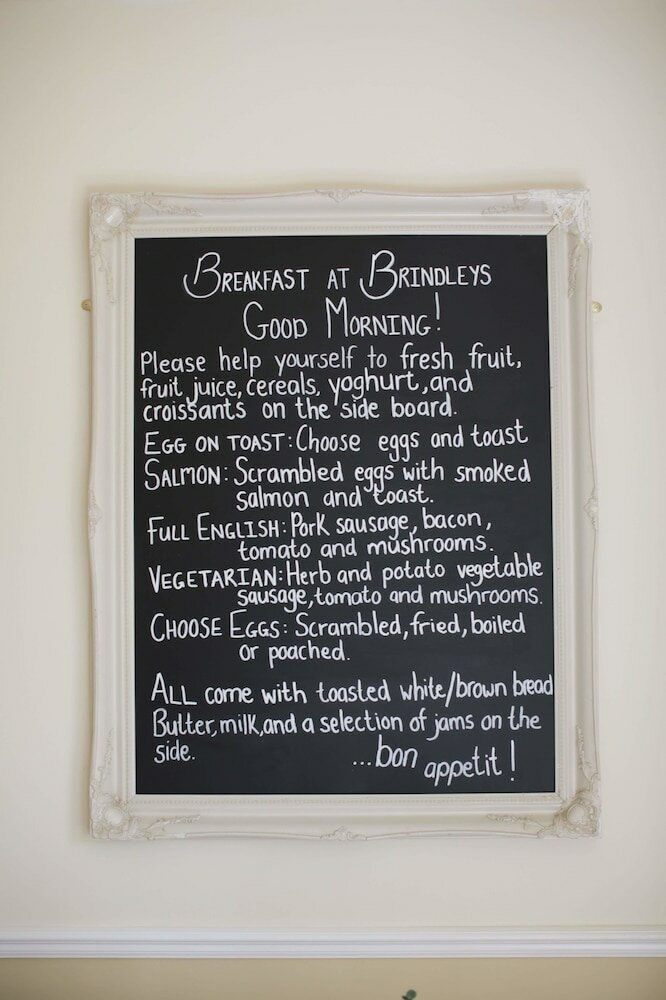 BREAKFAST AT BRINDLEYS
GOOD MORNING!
Please help yourself to fresh fruit,
fruit juice, cereals, yoghurt, and
croissants on the side board.
EGG ON TOAST: Choose eggs and toast
SALMON: Scrambled eggs with smoked
salmon and toast.
FULL ENGLISH: Pork sausage, bacon,
tomato and mushrooms.
VEGETARIAN: Herb and potato vegetable
sausage, tomato and mushrooms.
CHOOSE EGGS: Scrambled, fried, boiled
or poached.
ALL come with toasted white/brown bread
Butter, milk, and a selection of jams on the
side.
...bon appetit!